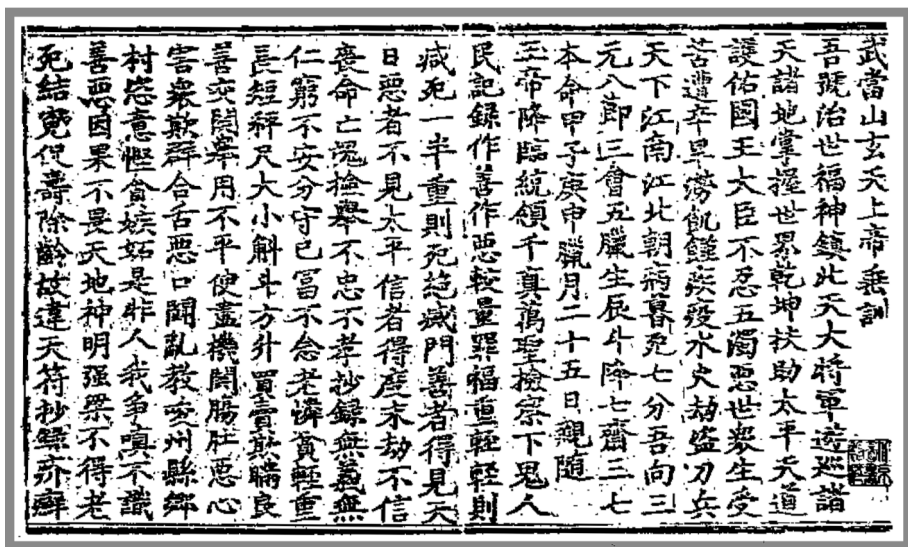 武當山玄天上帝垂訓
吾號治世福神鎮北天大將軍遊巡諸
天諸地掌握世界乾坤扶助太平天道
護佑國王大臣不忍五濁惡世衆生受
苦遭卒旱澇飢饉疾疫水火劫盜刀兵
天下江南江北朝病暮死七分吾向三
元八節三會五臘生辰斗降七齋三七
本命甲子庚申臘月二十五日親隨
玉帝降臨統領千真萬聖撿察下鬼人
民記録作善作惡較量罪福重輕輕則
减死一半重則死絶滅門善者得見天
日惡者不見太平信者得度末劫不信
喪命亡魂撿舉不忠不孝抄録無義無
仁窮不安分守己冨不念老憐貧輕重
長短秤尺大小斛斗方升買賣欺瞞良
善交關舉用不平使盡機關腸肚惡心
害衆欺群合舌惡口鬪亂教唆州縣鄉
村恣意慳貪嫉妬是非人我爭嗔不識
善惡因果不畏天地神明强梁不得老
死結寃促壽除齡故違天符抄録亦